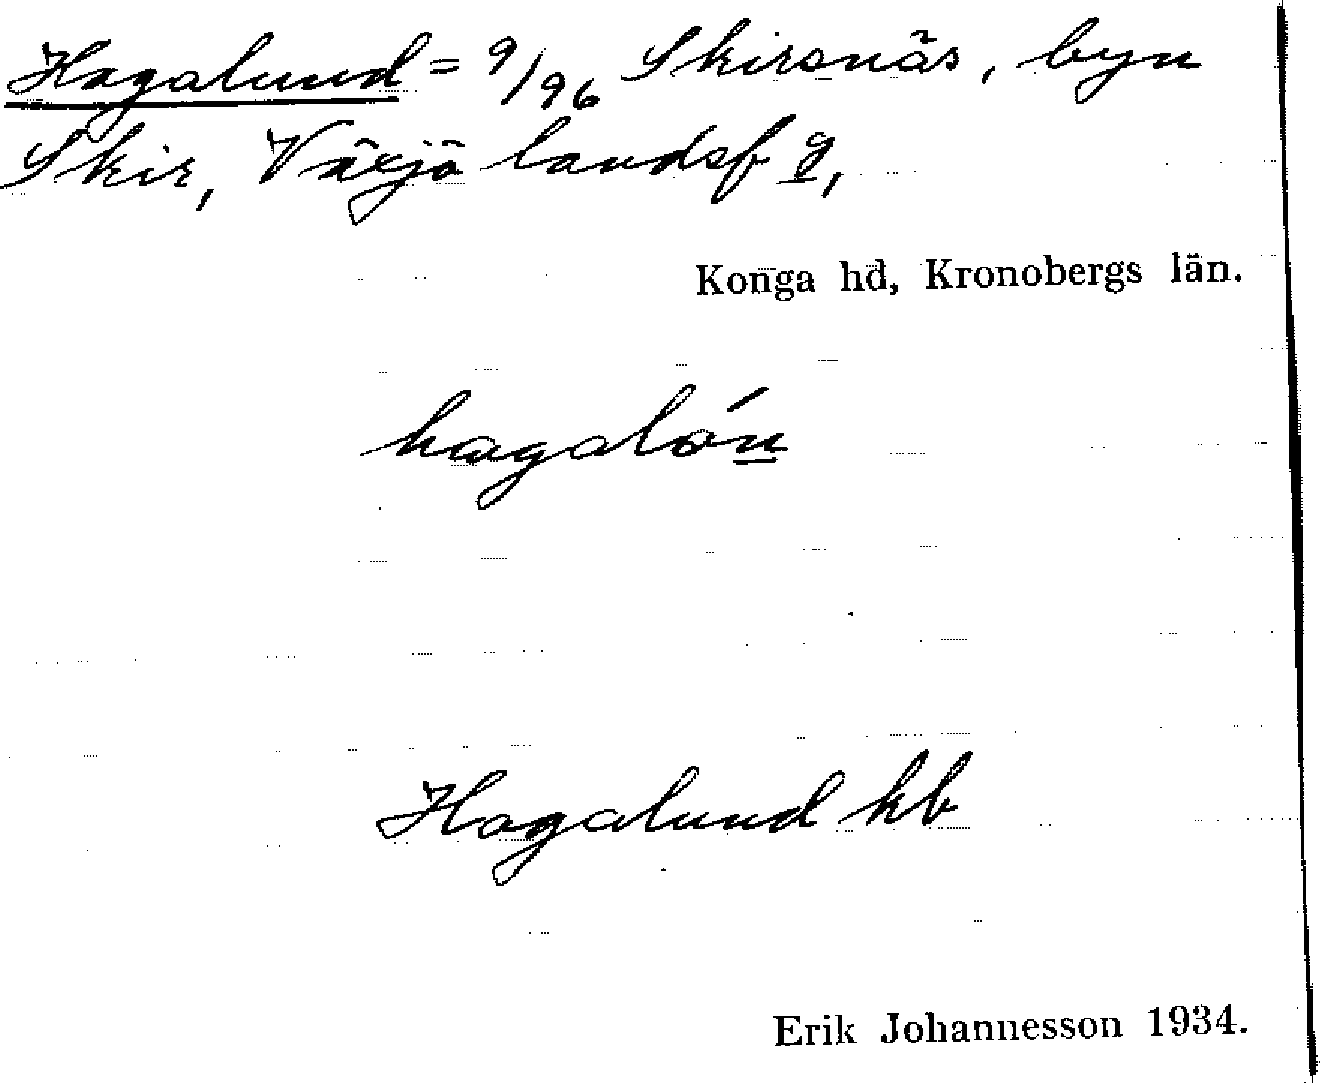 Hagalund = 9/96 Skirsnäs, byn
Skir, Växjö landsf g,
Konga hd, Kronobergs län.
hagaló́n
Hagalund kb
Erik Johannesson 1934.